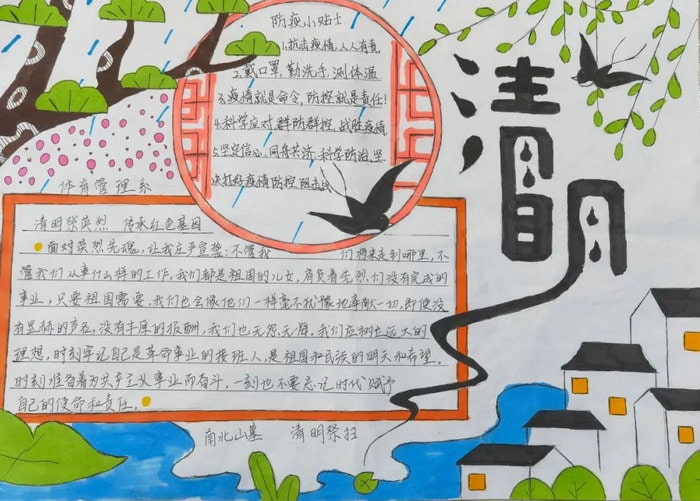 防疫小贴士
1.抗击疫情,人人有责
2.戴口罩,勤洗手,测体温
3.疫情就是命令,防控就是责任!
4.科学应对,群防群控,战胜疫情
5.坚定信心,同舟共济,科学防治,坚
决打好疫情防控阻击战
清明
体育管理系
清明祭英烈 传承红色基因
面对英烈先魂,让我庄严宣誓:不管我 们将来走到哪里,不
管我们从事什么样的工作,我们都是祖国的儿女,肩负着先烈们没有完成的
事业,只要祖国需要,我们也会像他们一样毫不犹豫地奉献一切,即使没
有显赫的声名,没有丰厚的报酬,我们也无怨无悔,我们应树立远大的
理想,时刻牢记自己是革命事业的接班人,是祖国和民族的明天和希望,
时刻准备着为共产主义事业而奋斗,一刻也不要忘记时代赋予
自己的使命和责任。
南北山墓 清明祭扫